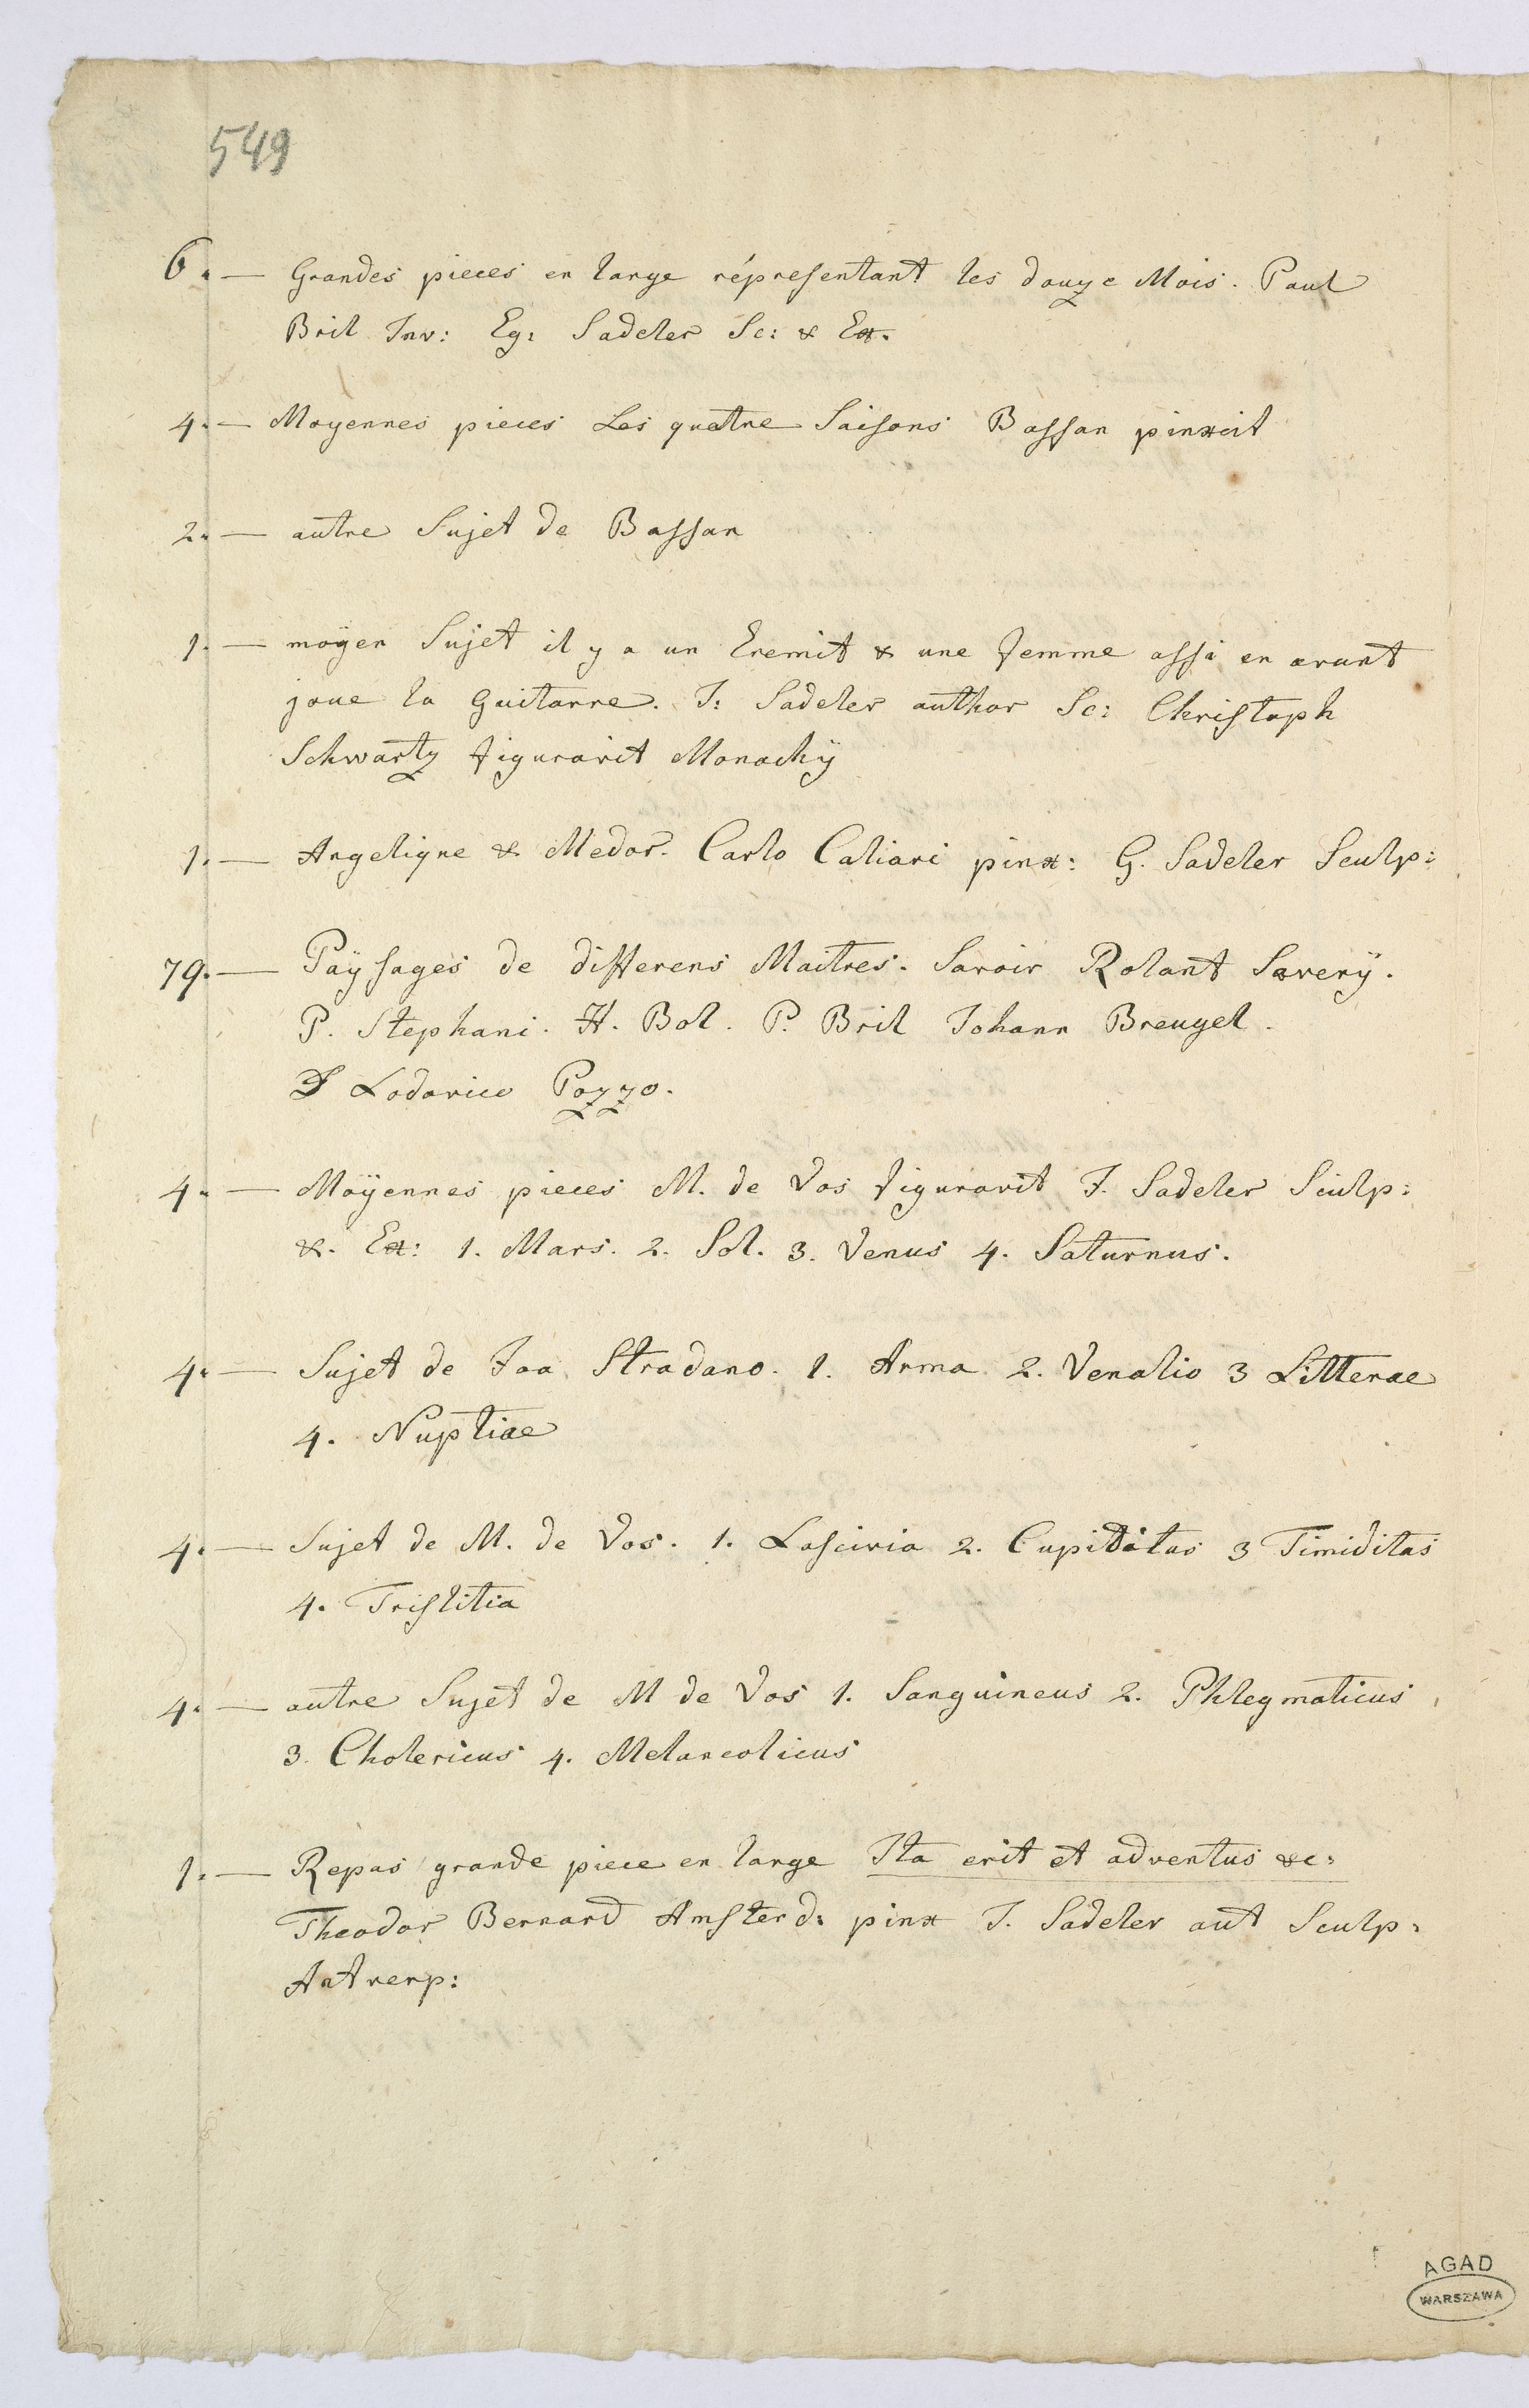 549
6. — Grandes pieces en large répresentant les douze Mois. Paul
Bril Inv: Eg: Sadeler Sc: & Ex.
4. — Moyennes pieces Les quatre Saisons Bassan pinxit
2. — autre Sujet de Bassan
1. — moÿen Sujet il y a un Eremit & une femme assi en avant
joue la Guitarre. I: Sadeler author Sc: Christoph
Schwartz figuravit Monachÿ
1. — Angelique & Medor. Carlo Caliari pinx: G. Sadeler Sculp:
79. — Paÿsages de differens Maitres. Savoir Rolant Saverÿ.
P. Stephani. H. Bol. P. Bril Johann Breugel.
Lodovico Pozzo.
4. — Moÿennes pieces M. de Vos figuravit I. Sadeler Sculp:
&. Ex: 1. Mars. 2. Sol. 3. Venus 4. Saturnus.
4. — Sujet de Joa Stradano. 1. Arma 2. Venatio 3 Litterae
4. Nuptiae
4. — Sujet de M. de Vos. 1. Lascivia 2. Cupiditas 3 Timiditas
4. Tristitia
4. — autre Sujet de M de Vos 1. Sanguineus 2. Phlegmaticus
3. Cholericus 4. Melancolicus
1. — Repas grande piece en large Ita erit et adventus &c:
Theodor Bernard Amsterd: pinx I. Sadeler aut Sculp:
Antverp:
AGAD
WARSZAWA